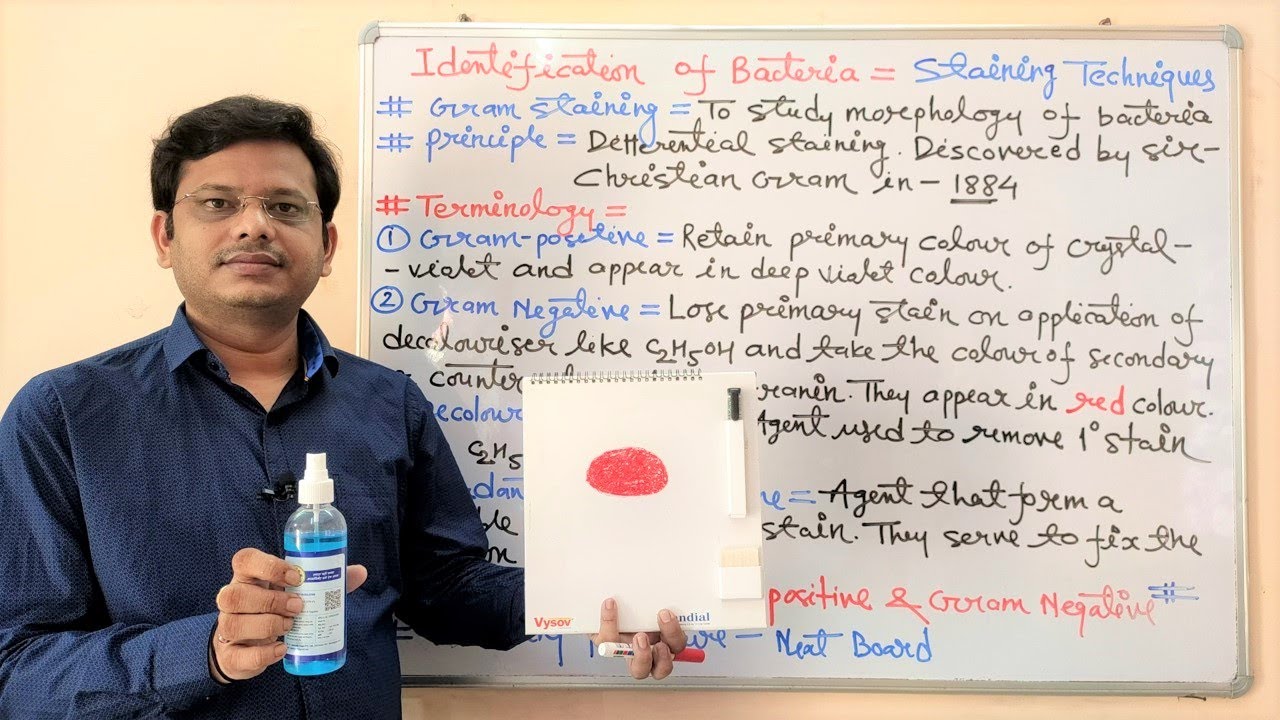 Identification of Bacteria = Staining Techniques
# Gram staining = To study morphology of bacteria
# principle = Defferential staining. Discovered by sir-
Christian Gram in - 1884
# Terminology =
① Gram-positive = Retain primary colour of crystal-
- violet and appear in deep violet colour.
② Gram Negative = Lose primary stain on application of
decolouriser like C2H5OH and take the colour of secondary
counter ranin. They appear in red colour.
ecolour Agent used to remove 1° stain
C2H5
dan ne = Agent that form a
ble stain. They serve to fix the
on
positive & Gram Negative #
= ure - Next Board
Vysov
ndial